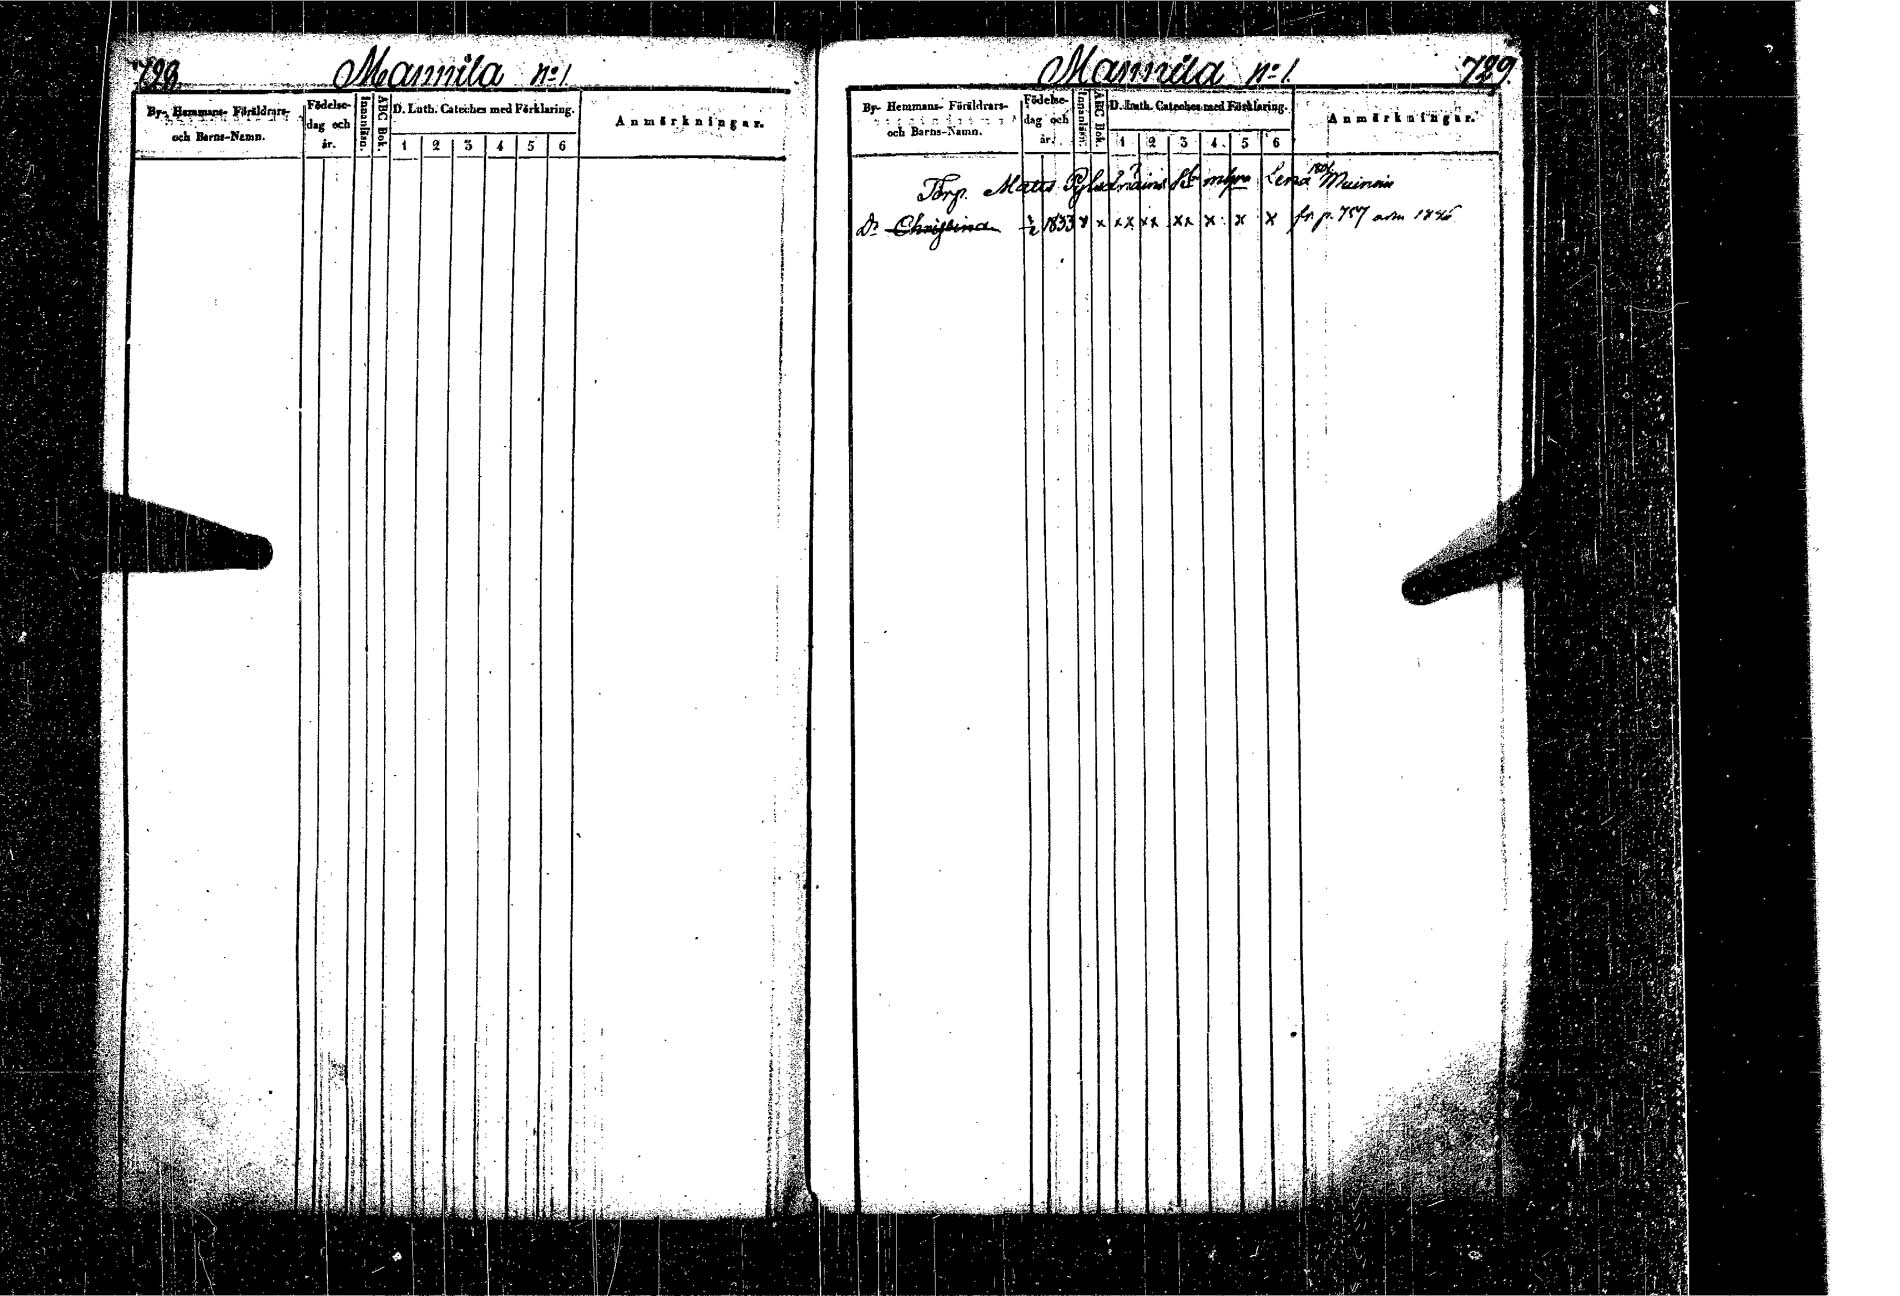 728. Mannila no 1
By- Hemmans- Föräldrars-
och Barns-Namn.
Födelse-
dag och
år.
Innanläsn.
ABC Bok.
D. Luth. Cateches med Förklaring.
1 2 3 4 5 6
Anmärkningar.
Mannila no 1. 729.
By- Hemmans- Föräldrars-
och Barns-Namn.
Födelse-
dag och
år.
Innanläsn.
ABC Bok.
D. Luth. Cateches med Förklaring.
1 2 3 4 5 6
Anmärkningar.
Torp. Matts Lena
Dr Christina 1833 x x xx xx xx x x x fr. p. 757 1846